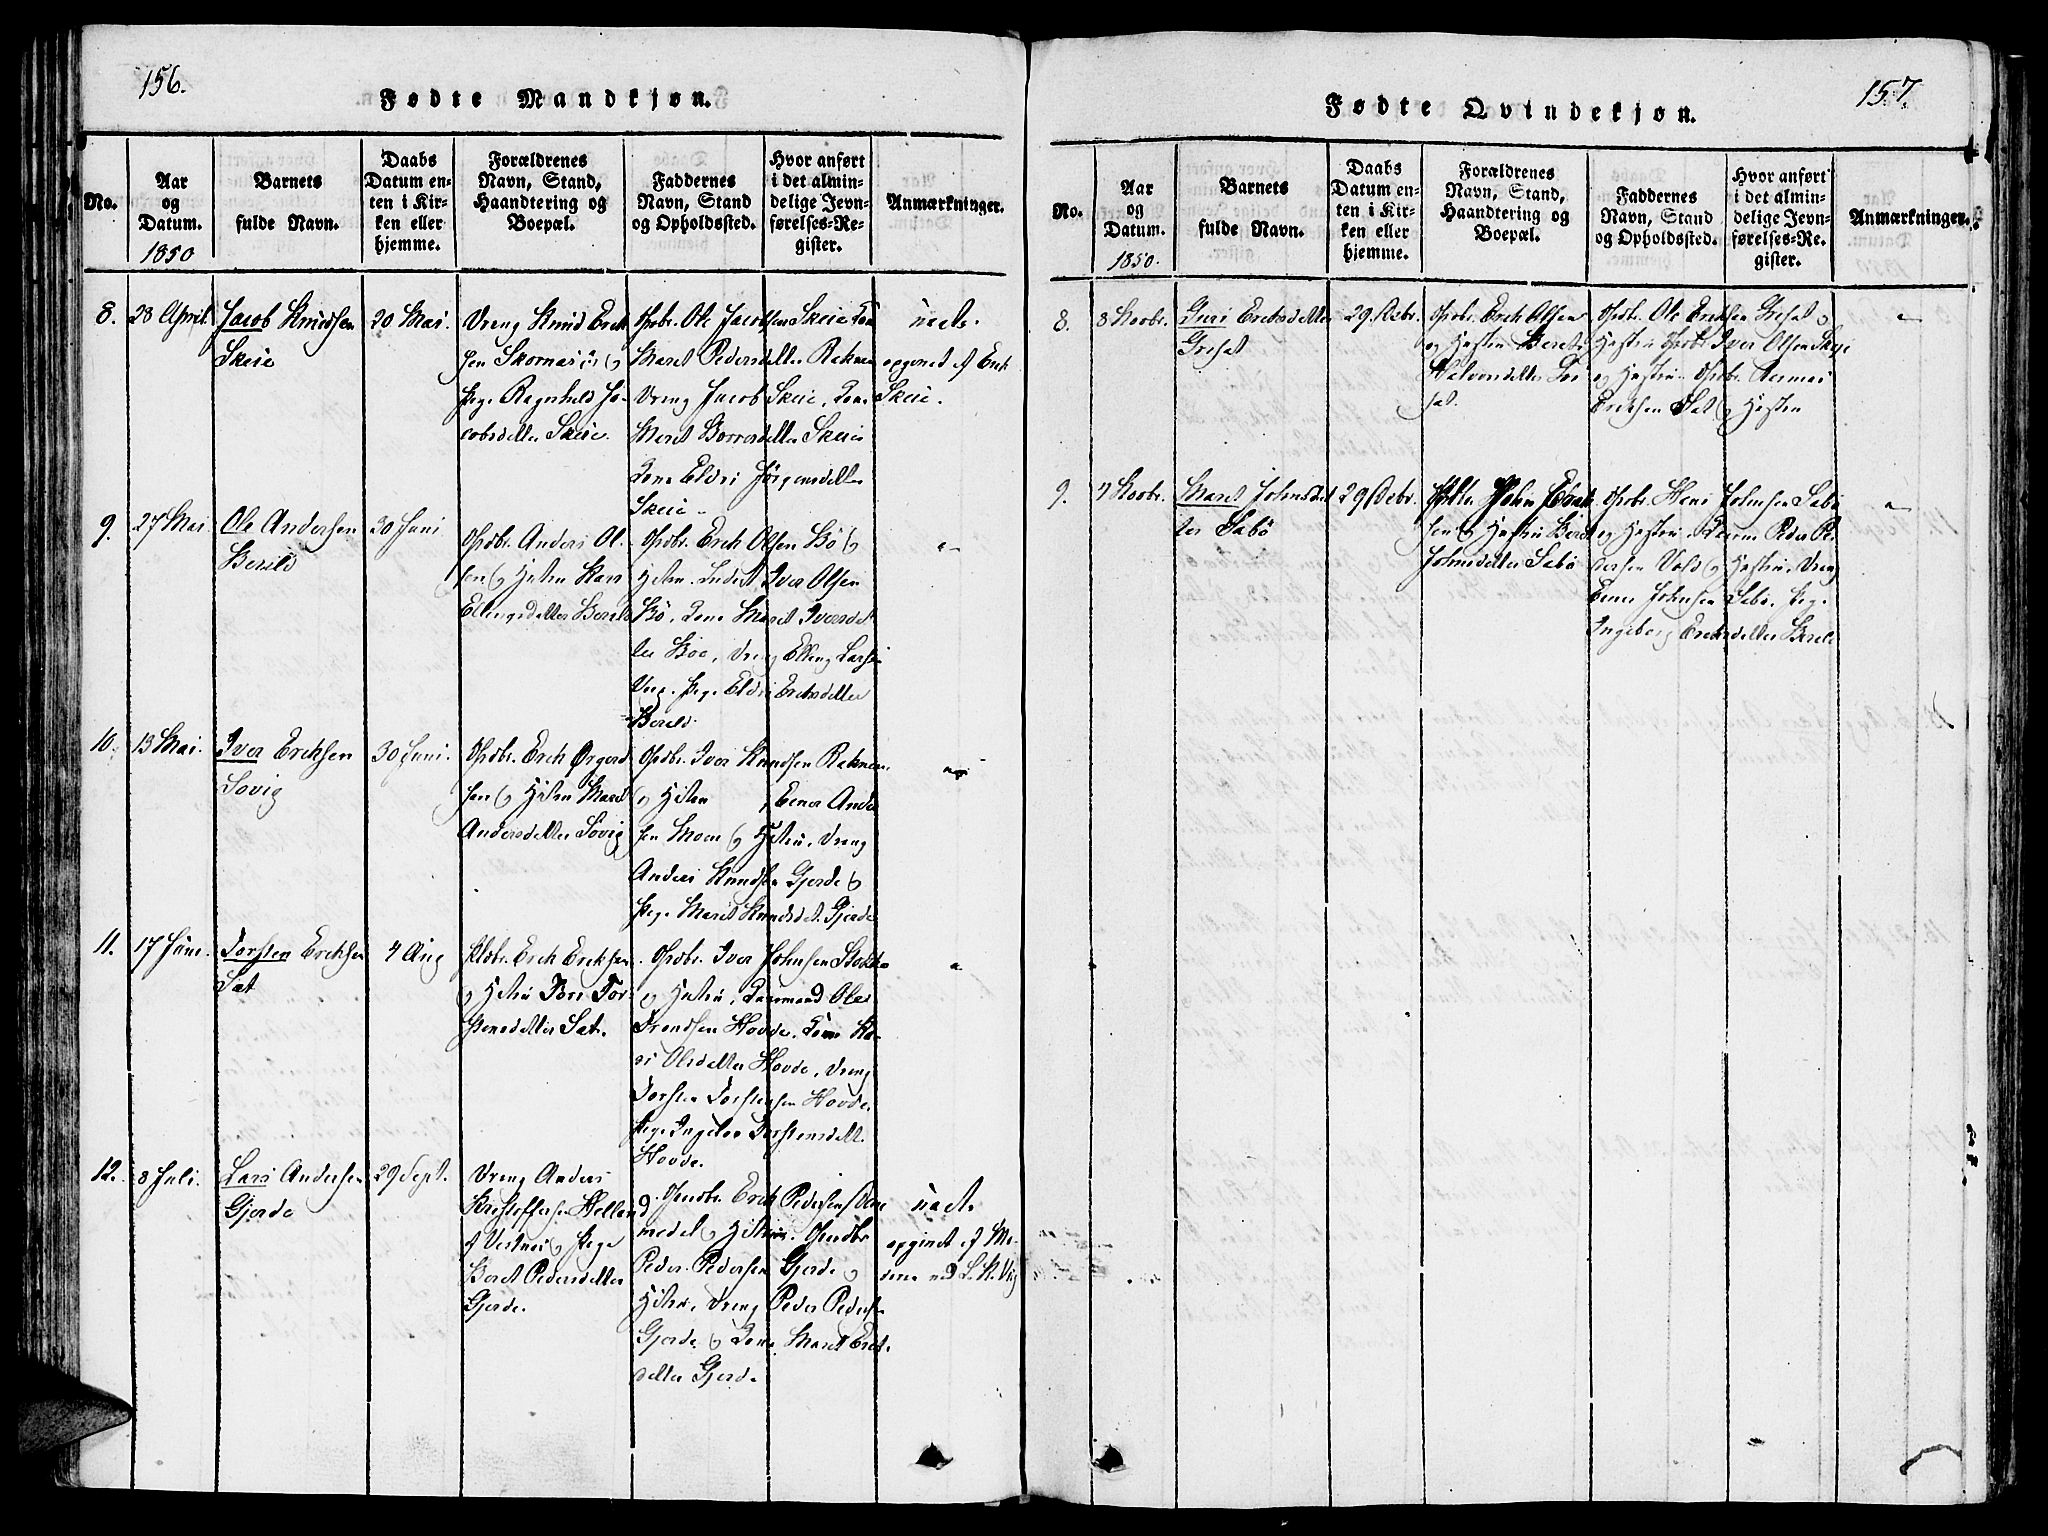 156.
Fødte Mandkjøn.
No.
Aar
og
Datum.
1850
Barnets
fulde Navn.
Daabs
Datum en-
ten i Kir-
ken eller
hjemme.
Forældrenes
Navn, Stand,
Haandtering og
Boepæl.
Faddernes
Navn, Stand
og Opholdssted.
Hvor anført
i det almin-
delige Jevn-
førelses-Re-
gister.
Anmærkninger.
8.
28 April.
Jacob Knudsen
Skeie
20 Mai.
Dreng Knud Erik
sen
Pige Ragnhild Ja-
cobsdatter Skeie.
Ole Jacobsen Skeie Kone
Maret Pedersdatter
Dreng Jacob Skeie, Kone
Maret Skeie
Kone Eldri Jørgensdatter
Skeie
uægte
opgivet af Enk
Skeie.
9.
27 Mai
Ole Andersen
Berild
30 Juni
Gbdbr. Anders Ol-
sen og Hstru
Ellingsdatter Berild
Gbdbr. Erik Olsen Bø og
Hstru. Inderst Iver Olsen
Bø, Kone Marit Iversdat
ter Bøe, Dreng Elling Larsen
Pige Eldri Eriksdatter
Berild
10.
13 Mai.
Iver Eriksen
Søvig
30 Juni.
Gbdbr. Erik
sen og Hstru Maret
Andersdatter Søvig
Gbdbr. Iver Knudsen
og Hstru, Ander
sen Moen og Hstru, Dreng
Anders Knudsen Gjerde og
Pige Marit Knudsdt. Gjerde
11.
17 Juni.
Torsten Eriksen
Sæt
4 Aug
Erik Eriksen
og Hstru Tor-
stensdatter Sæt.
Gbdbr. Iver Johnsen
og Hstru, Ole
Trondsen Hovde. Kone Ka-
ri Olsdatter Hovde, Dreng
Torsten Torstensen Hovde.
Pige Torstensdatt.
Hovde.
12.
8 Juli.
Lars Andersen
Gjerde
29 Sept.
Dreng Anders
Kristoffersen Helland
af Vestnes og Pige
Beret Pedersdatter
Gjerde.
Gbdbr. Erik Pedersen
og Hstru.
Peder Pedersen Gjerde og
Hstru, Dreng Peder Peders
Gjerde og Kone Maret Erik
datter Gjerde
uægte
opgivet af Mo-
deren
157.
Fødte Qvindekjøn.
No.
Aar
og
Datum.
1850.
Barnets
fulde Navn.
Daabs
Datum en-
ten i Kir-
ken eller
hjemme.
Forældrenes
Navn, Stand,
Haandtering og
Boepæl.
Faddernes
Navn, Stand
og Opholdssted.
Hvor anført
i det almin-
delige Jevn-
førelses-Re-
gister.
Anmærkninger.
8.
3 Novbr.
Guri Eriksdatter
29. Decbr.
Gbdbr. Erik Olsen
og Hustru Beret
Halvorsdatter
Gbdbr. Ole Eriksen
Hustru Gbdbr. Iver Olsen Skeie
og Hustru Gbdbr. Rasmus
Eriksen Sæt og Hustru
9.
7 Novbr.
Maret Johnsdat
ter Sæbø
29 Decbr.
John Erik
sen og Hustru Beret
Johnsdatter Sæbø
Gbdbr. Johnsen Sæbø
og Hustru Peder Pe
dersen Vold og Hustru, Dreng
Johnsen Sæbø, Pige
Ingeborg Eriksdatter Berild